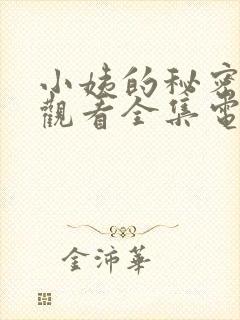 小姨的秘密
觀看全集電
金沛華